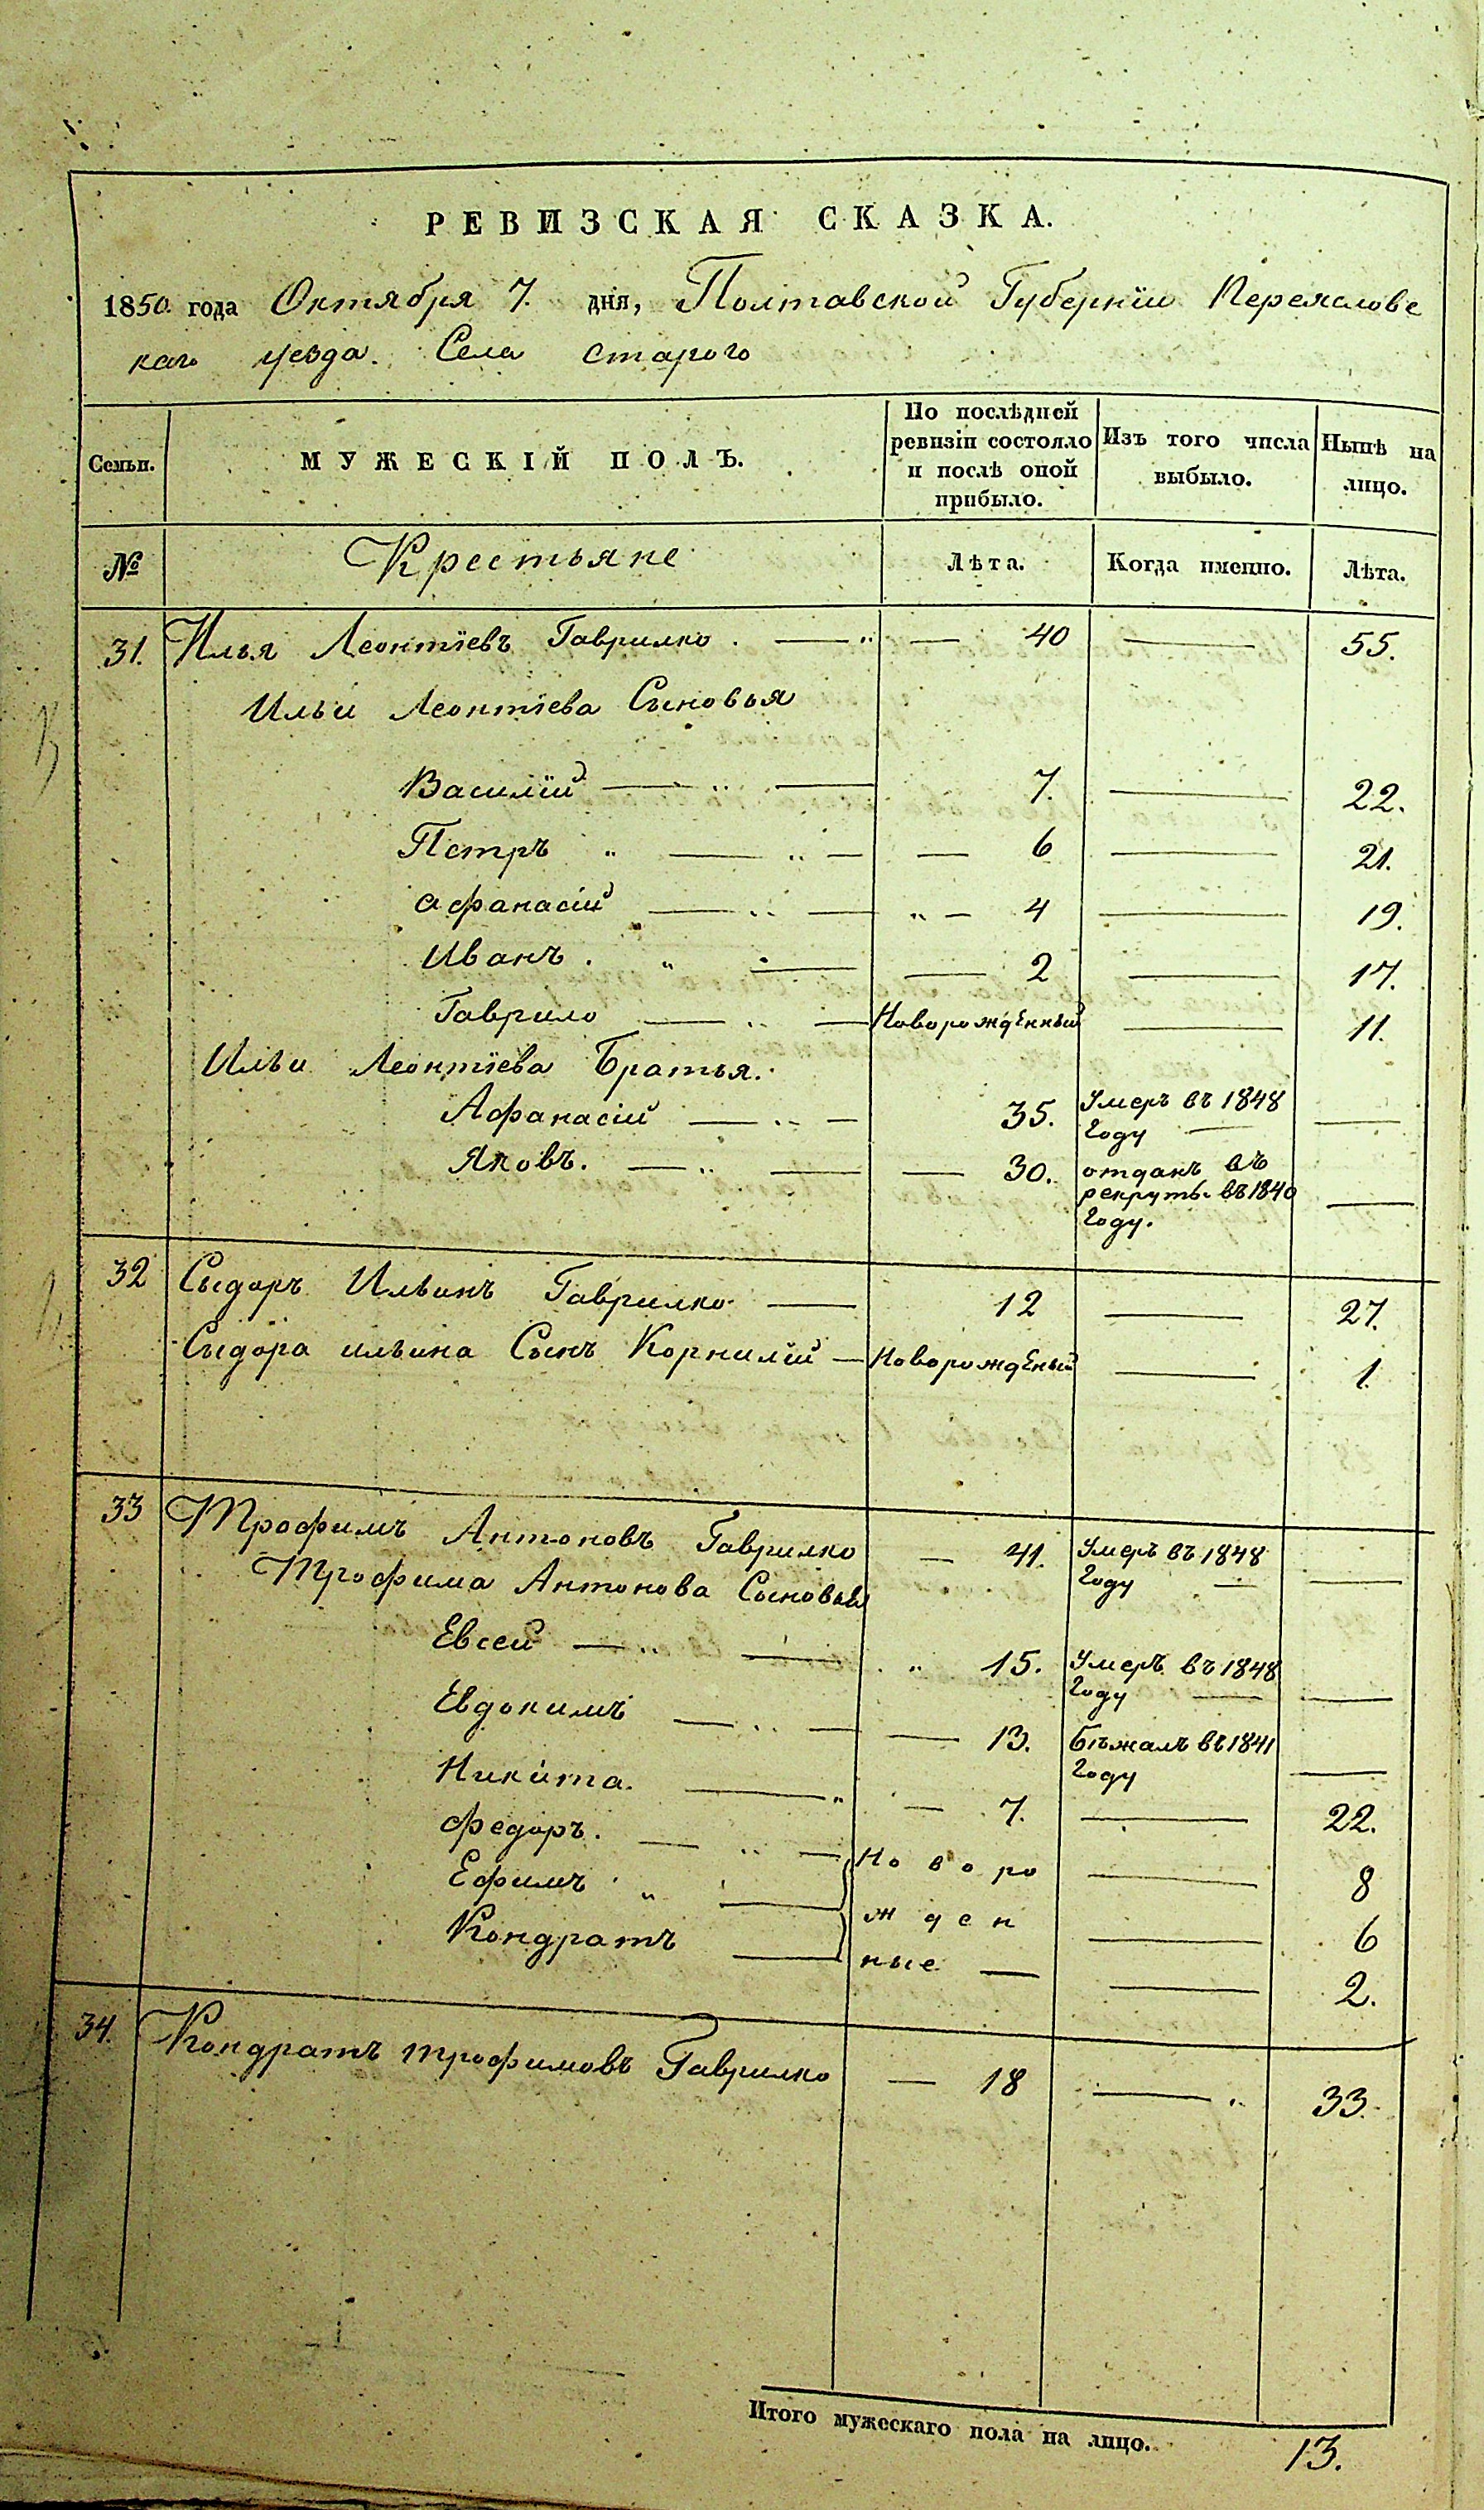 РЕВИЗСКАЯ СКАЗКА.
1850 года Октября 7. дня, Полтавской Губернїи Переяславс
каго уезда. Села Старого
Семьи. МУЖЕСКІЙ ПОЛЪ. По послѣдней ревизіи состояло и послѣ оной прибыло. Изъ того числа выбыло. Нынѣ на лицо.
№ Крестьяне Лѣта. Когда именно. Лѣта.
31. Илья Леонтїевъ Гаврилко. — 40 — 55.
Ильи Леонтїева Сыновья
Василїй — 7. — 22.
Петръ — 6 — 21.
Афанасїй — 4 — 19.
Иванъ. — 2 — 17.
Гаврило — Новорожденный — 11.
Ильи Леонтїева Братья.
Афанасїй — 35. Умеръ въ 1848 —
Году —
Яковъ. — 30. отданъ въ
рекруты въ 1840 —
Году.
32 Сыдоръ Ильинъ Гаврилко — 12 — 27.
Сыдора ильина Сынъ Корнилїй — Новорожденый — 1.
33 Трофимъ Антоновъ Гаврилко — 41. Умеръ въ 1848
Году — —
Трофима Антонова Сыновья
Евсей — 15. Умеръ въ 1848
Году — —
Евдокимъ — 13. Бѣжалъ въ 1841
Году —
Никита. — 7. — 22.
Федоръ. — Новоро — 8
Ефимъ — жден — 6
Кондратъ — ные — — 2.
34. Кондратъ трофимовъ Гаврилко — 18 — 33.
Итого мужескаго пола на лицо. 13.